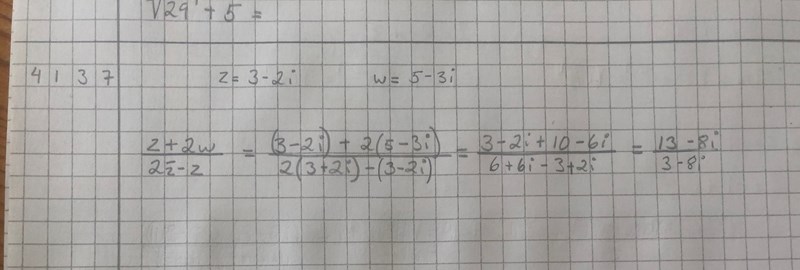 √29 + 5 =
4 1 3 7 z = 3-2i w = 5-3i
(z+2w)/(2z̄-z) = ((3-2i) + 2(5-3i))/(2(3+2i)-(3-2i)) = (3-2i+10-6i)/(6+6i-3+2i) = (13-8i)/(3-8i)